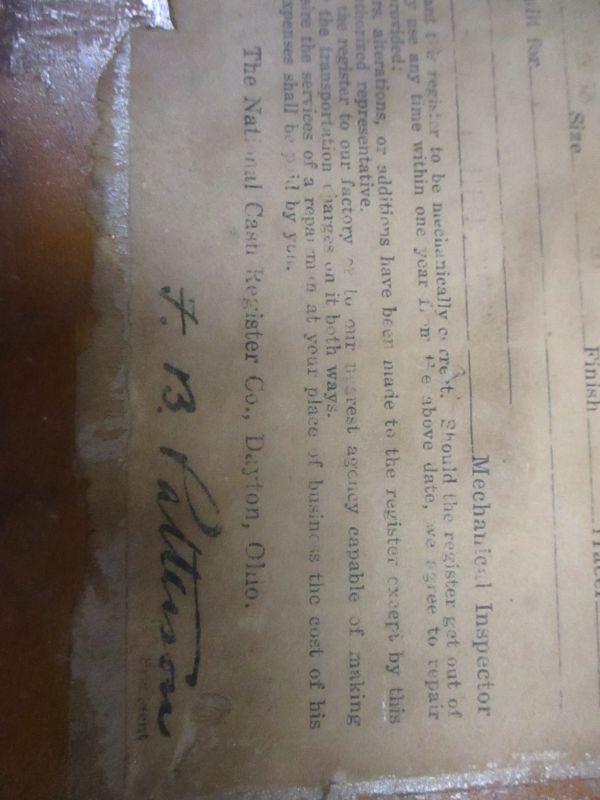 uilt for
Size
Finish
Tracer
Mechanical Inspector
register to be mechanically correct. Should the register get out of
use any time within one year from the above date, we agree to repair
provided:
alterations, or additions have been made to the register except by this
authorized representative.
the register to our factory or to our nearest agency capable of making
the transportation charges on it both ways.
the services of a repairman at your place of business the cost of his
expenses shall be paid by you.
The National Cash Register Co., Dayton, Ohio.
Patterson
President